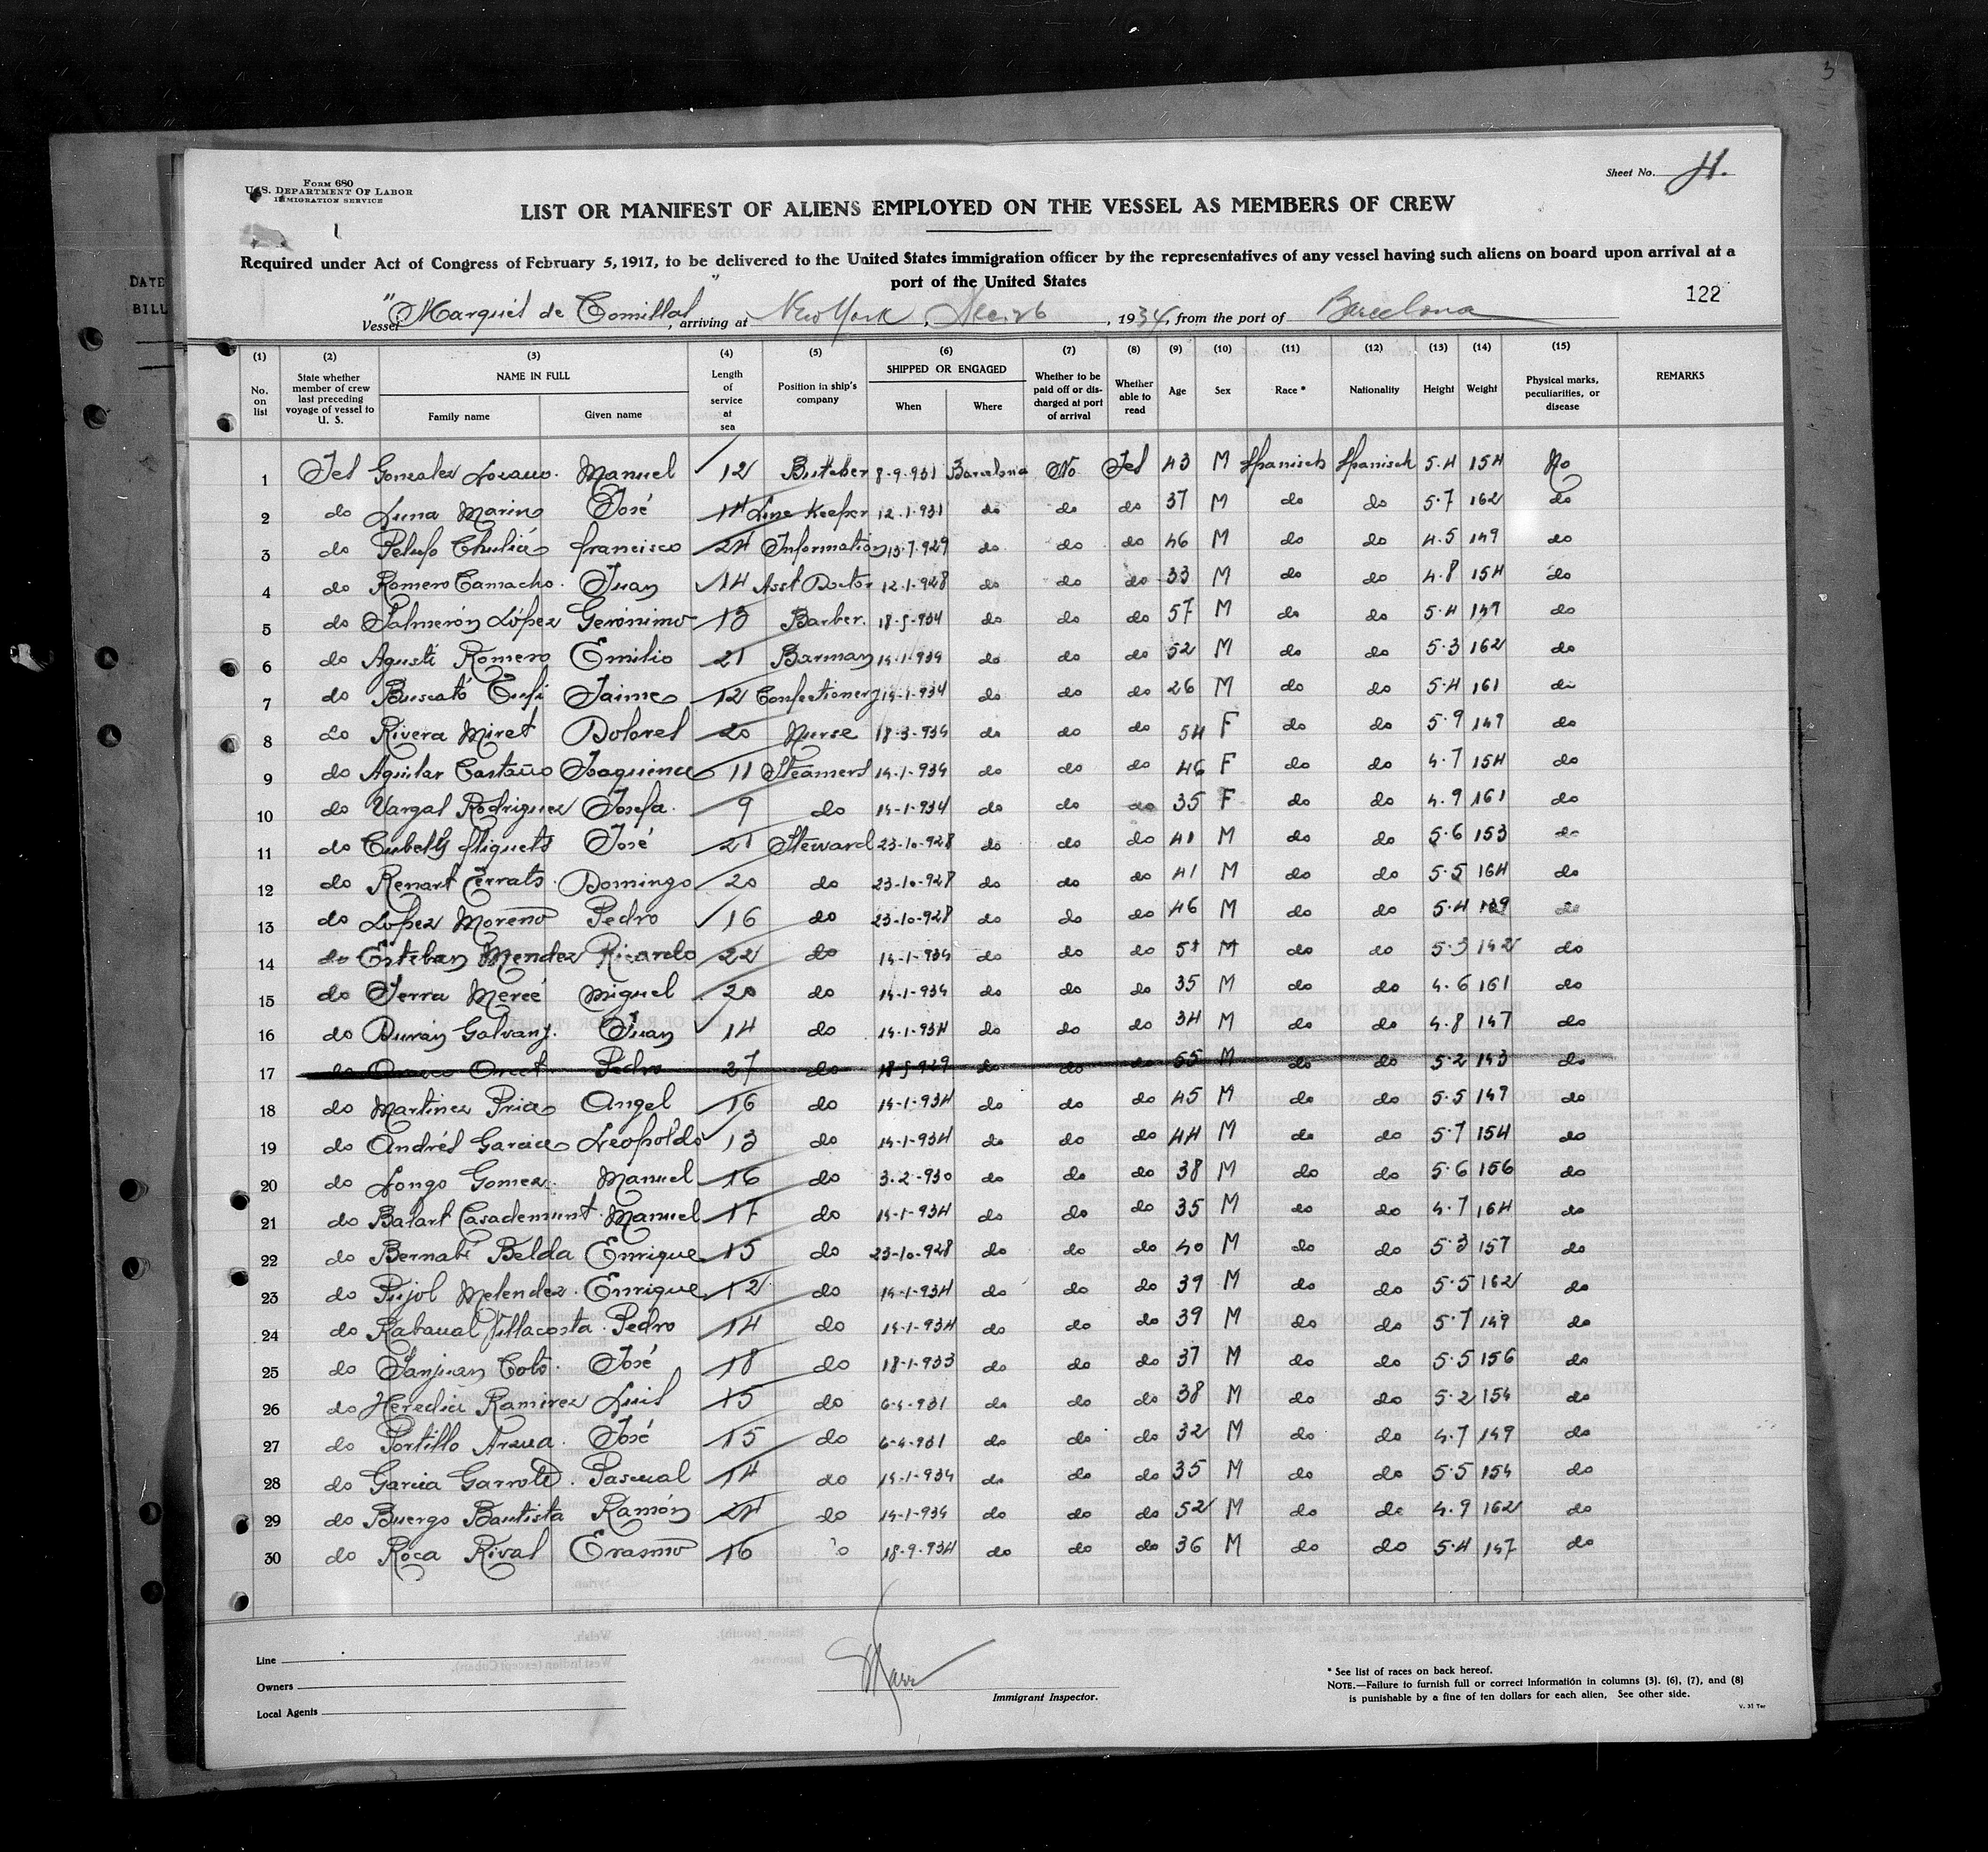 3
Form 680
U. S. DEPARTMENT OF LABOR
IMMIGRATION SERVICE
Sheet No. 4.
LIST OR MANIFEST OF ALIENS EMPLOYED ON THE VESSEL AS MEMBERS OF CREW
1
Required under Act of Congress of February 5, 1917, to be delivered to the United States immigration officer by the representatives of any vessel having such aliens on board upon arrival at a
port of the United States
DATE
BILL
122
Vessel "Marqués de Comillas", arriving at New York, Dec. 26, 1934, from the port of Barcelona
(1) (2) (3) (4) (5) (6) (7) (8) (9) (10) (11) (12) (13) (14) (15)
No. on list State whether member of crew last preceding voyage of vessel to U. S. NAME IN FULL Family name Given name Length of service at sea Position in ship's company SHIPPED OR ENGAGED When Where Whether to be paid off or discharged at port of arrival Whether able to read Age Sex Race * Nationality Height Weight Physical marks, peculiarities, or disease REMARKS
1 Yes Gonzalez Lozano. Manuel 12 Butcher 8-9-931 Barcelona No Yes 43 M Spanish Spanish 5.4 154 No
2 do Luna Marin José 14 Line Keeper 12-1-931 do do do 37 M do do 5.7 162 do
3 do Pelufo Chuliá francisco 24 Information 13-7-929 do do do 46 M do do 4.5 149 do
4 do Romero Camacho. Juan 14 Asst Doctor 12-1-928 do do do 33 M do do 4.8 154 do
5 do Salmerón López Gerónimo 13 Barber. 18-5-934 do do do 57 M do do 5.4 149 do
6 do Agusti Romero Emilio 21 Barman 14-1-934 do do do 52 M do do 5.3 162 do
7 do Buscató Cufi Jaime 12 Confectionery 14-1-934 do do do 26 M do do 5.4 161 do
8 do Rivera Miret Dolores 20 Nurse 18-3-934 do do do 54 F do do 5.9 149 do
9 do Aguilar Castaño Joaquina 11 Steamers 14-1-934 do do do 46 F do do 4.7 154 do
10 do Vargas Rodriguez Josefa. 9 do 14-1-934 do do do 35 F do do 4.9 161 do
11 do Cubells José 21 Steward 23-10-928 do do do 41 M do do 5.6 153 do
12 do Renart Cerrats. Domingo 20 do 23-10-928 do do do 41 M do do 5.5 164 do
13 do Lopez Moreno Pedro 16 do 23-10-928 do do do 46 M do do 5.4 do
14 do Esteban Mendez Ricardo 22 do 14-1-934 do do do M do do 5.3 142 do
15 do Serra Mercé Miguel 20 do 14-1-934 do do do 35 M do do 4.6 161 do
16 do Durán Galvany. Juan 14 do 14-1-934 do do do 34 M do do 4.8 147 do
17 do Pedro 27 do 18-5-929 do do do 55 M do do 5.2 143 do
18 do Martinez Pria Angel 16 do 14-1-934 do do do 45 M do do 5.5 147 do
19 do Andrés Garcia Leopoldo 13 do 14-1-934 do do do 44 M do do 5.7 154 do
20 do Longo Gomez. Manuel 16 do 3-2-930 do do do 38 M do do 5.6 156 do
21 do Balart Casademunt. Manuel 17 do 14-1-934 do do do 35 M do do 4.7 164 do
22 do Bernabé Belda Enrique 15 do 23-10-928 do do do 40 M do do 5.3 157 do
23 do Pujol Melendez. Enrique 12 do 14-1-934 do do do 39 M do do 5.5 162 do
24 do Rabanal Villacosta. Pedro 14 do 14-1-934 do do do 39 M do do 5.7 149 do
25 do Sanjuan Coto. José 18 do 18-1-933 do do do 37 M do do 5.5 156 do
26 do Heredia Ramirez Luis 15 do 6-4-931 do do do 38 M do do 5.2 154 do
27 do Portillo Arzua. José 15 do 6-4-931 do do do 32 M do do 4.7 149 do
28 do Garcia Garrote. Pascual 14 do 14-1-934 do do do 35 M do do 5.5 154 do
29 do Buergo Bautista Ramón 24 do 14-1-934 do do do 52 M do do 4.9 162 do
30 do Roca Rival Erasmo 16 do 18-9-934 do do do 36 M do do 5.4 147 do
Line
Owners
Local Agents
Immigrant Inspector.
* See list of races on back hereof.
NOTE.—Failure to furnish full or correct information in columns (3), (6), (7), and (8)
is punishable by a fine of ten dollars for each alien. See other side.
V. 31 Ter